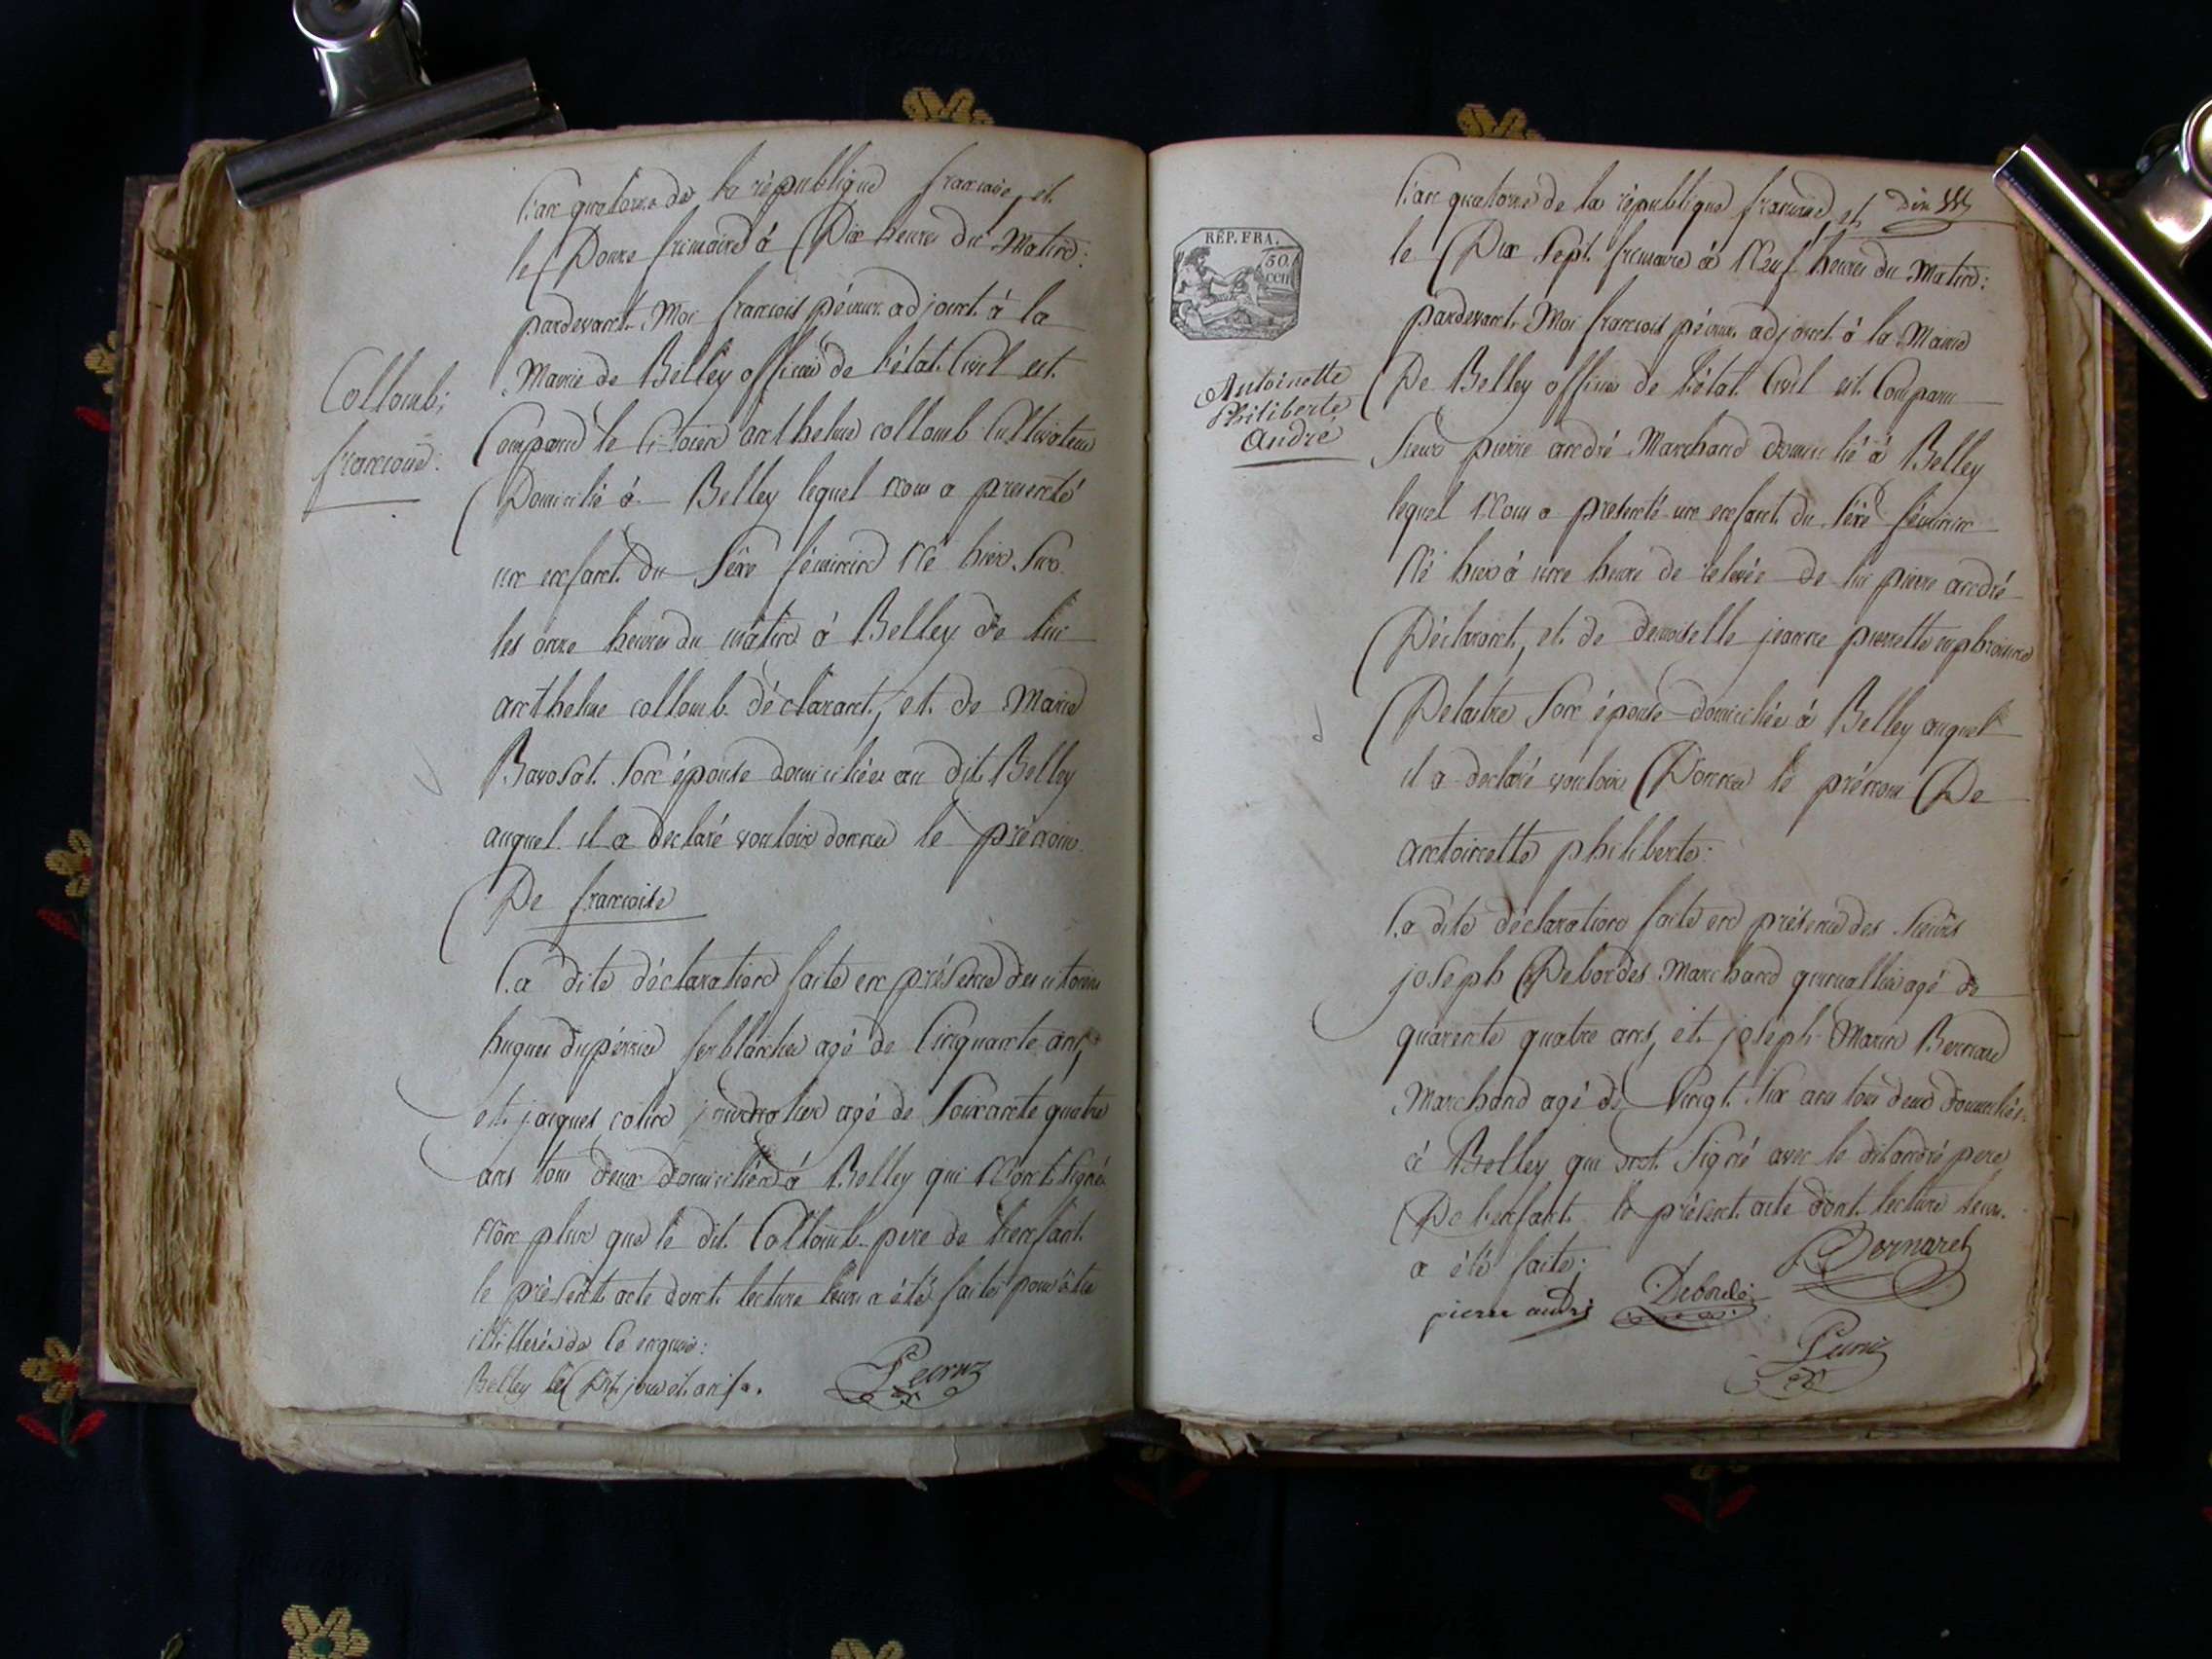 l'an quatorze de la république francaise, et
le Douze frimaire à Dix heures du Matin:
pardevant Moi francois péconx adjoint à la
Mairie de Belley officier de l'état Civil est
Collomb;
francoise:
Comparu le Citoien anthelme collomb Cultivateur
Domicilié à Belley lequel nous a presenté
un enfant du Sèxe féminin Né hier Sur
les onze heures du matin à Belley de lui
anthelme collomb déclarant, et de Marie
Bavosat Son épouse domiciliée au dit Belley
auquel il a declaré vouloir donner le prénom
De francoise
La dite déclaration faite en présence des citoiens
hugues duperrier ferblantier agé de Cinquante ans,
et jacques colin agé de Soixante quatre
ans tous deux domiciliés à Belley qui N'ont Signé
Non plus que le dit Collomb pere de l'enfant
le présent acte dont lecture leur a été faite pour être
illitérés de ce enquis:
Belley les Dit jour et an
l'an quatorze de la république francaise et
le Dix Sept frimaire à Neuf heures du Matin:
RÉP. FRA.
50.
cen
pardevant Moi francois adjoint à la Mairie
Antoinette
Philiberte
André
De Belley officier de l'état Civil est Comparu
Sieur pierre andré Marchand domicilié à Belley
lequel Nous a presenté un enfant du Séxe féminin
Né hier à une heure de relevée de lui pierre andré
Déclarant, et de demoiselle jeanne pierrette euphrosine
Delastre Son épouse domiciliée à Belley auquel
il a declaré vouloir Donner le prénom De
antoinette philiberte:
La dite déclaration faite en présence des Sieurs
joseph Debordes Marchand quincallier agé de
quarente quatre ans, et joseph Marin Bernard
Marchand agé de Vingt Six ans tous deux domiciliés
à Belley qui ont Signé avec le dit andré pere
De l'enfant le présent acte dont lecture leur
a été faite:
Bernard
pierre andré